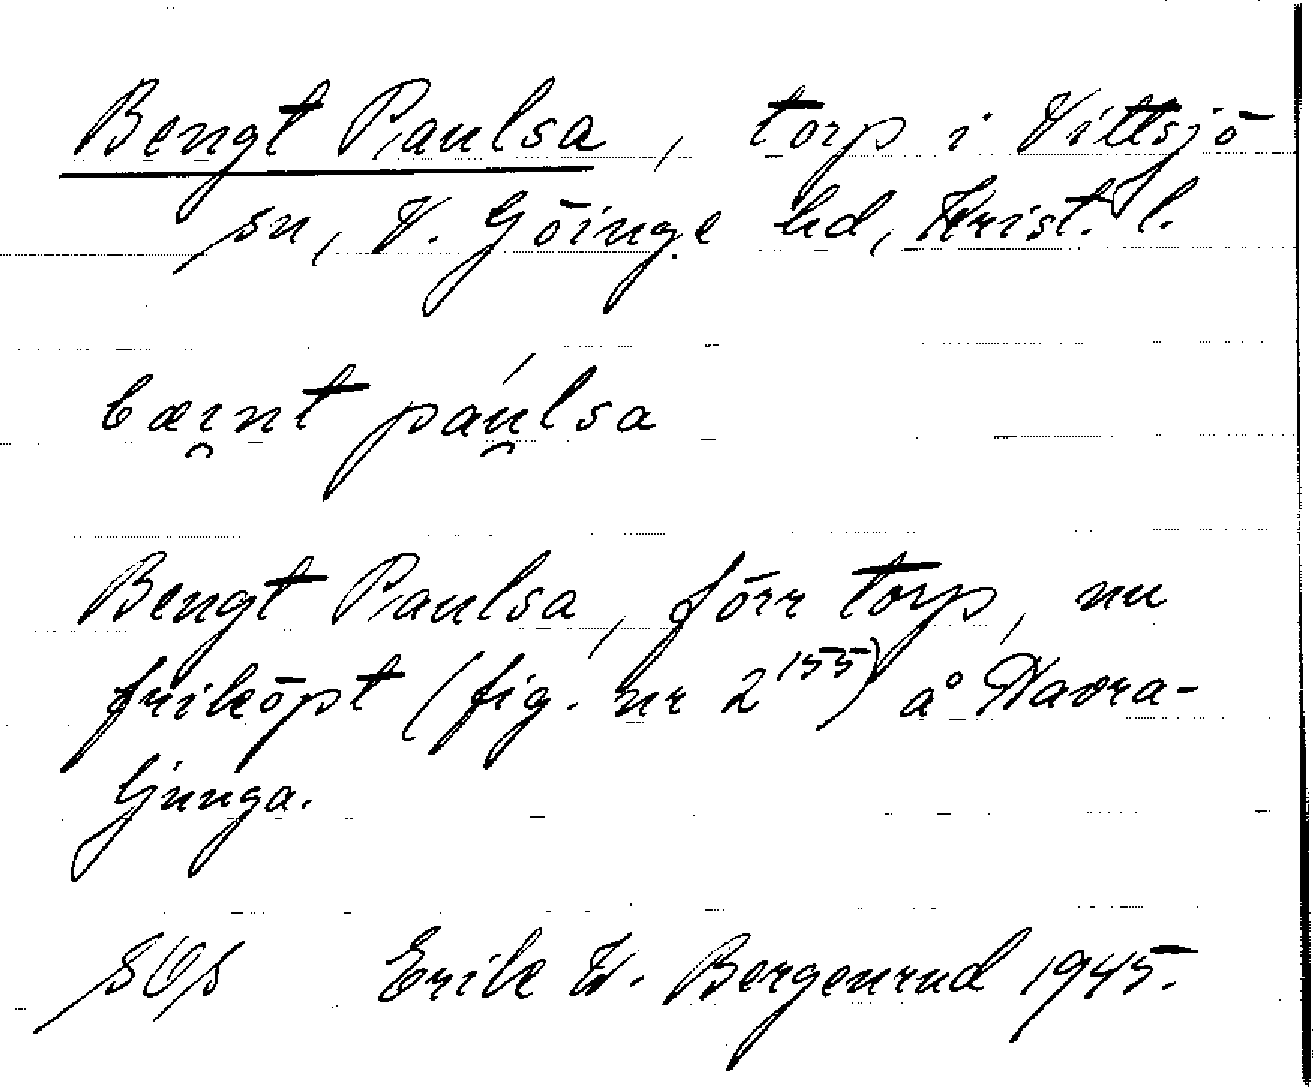 Bengt Paulsa, torp i Vittsjö
sn, V. Göinge hd, Krist. l.
bæi̯nt páu̯lsa
Bengt Paulsa, förr torp, nu
friköpt (fig. nr 2¹⁵⁵) å Havra-
ljunga.
Erik W. Bergenrud 1945.